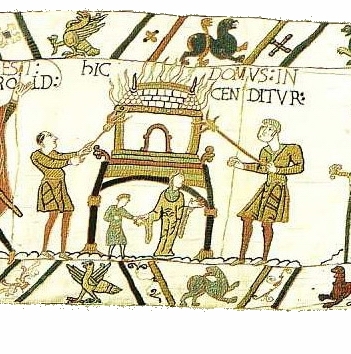 ROLD: HIC DOMVS: IN
CEN DITVR: